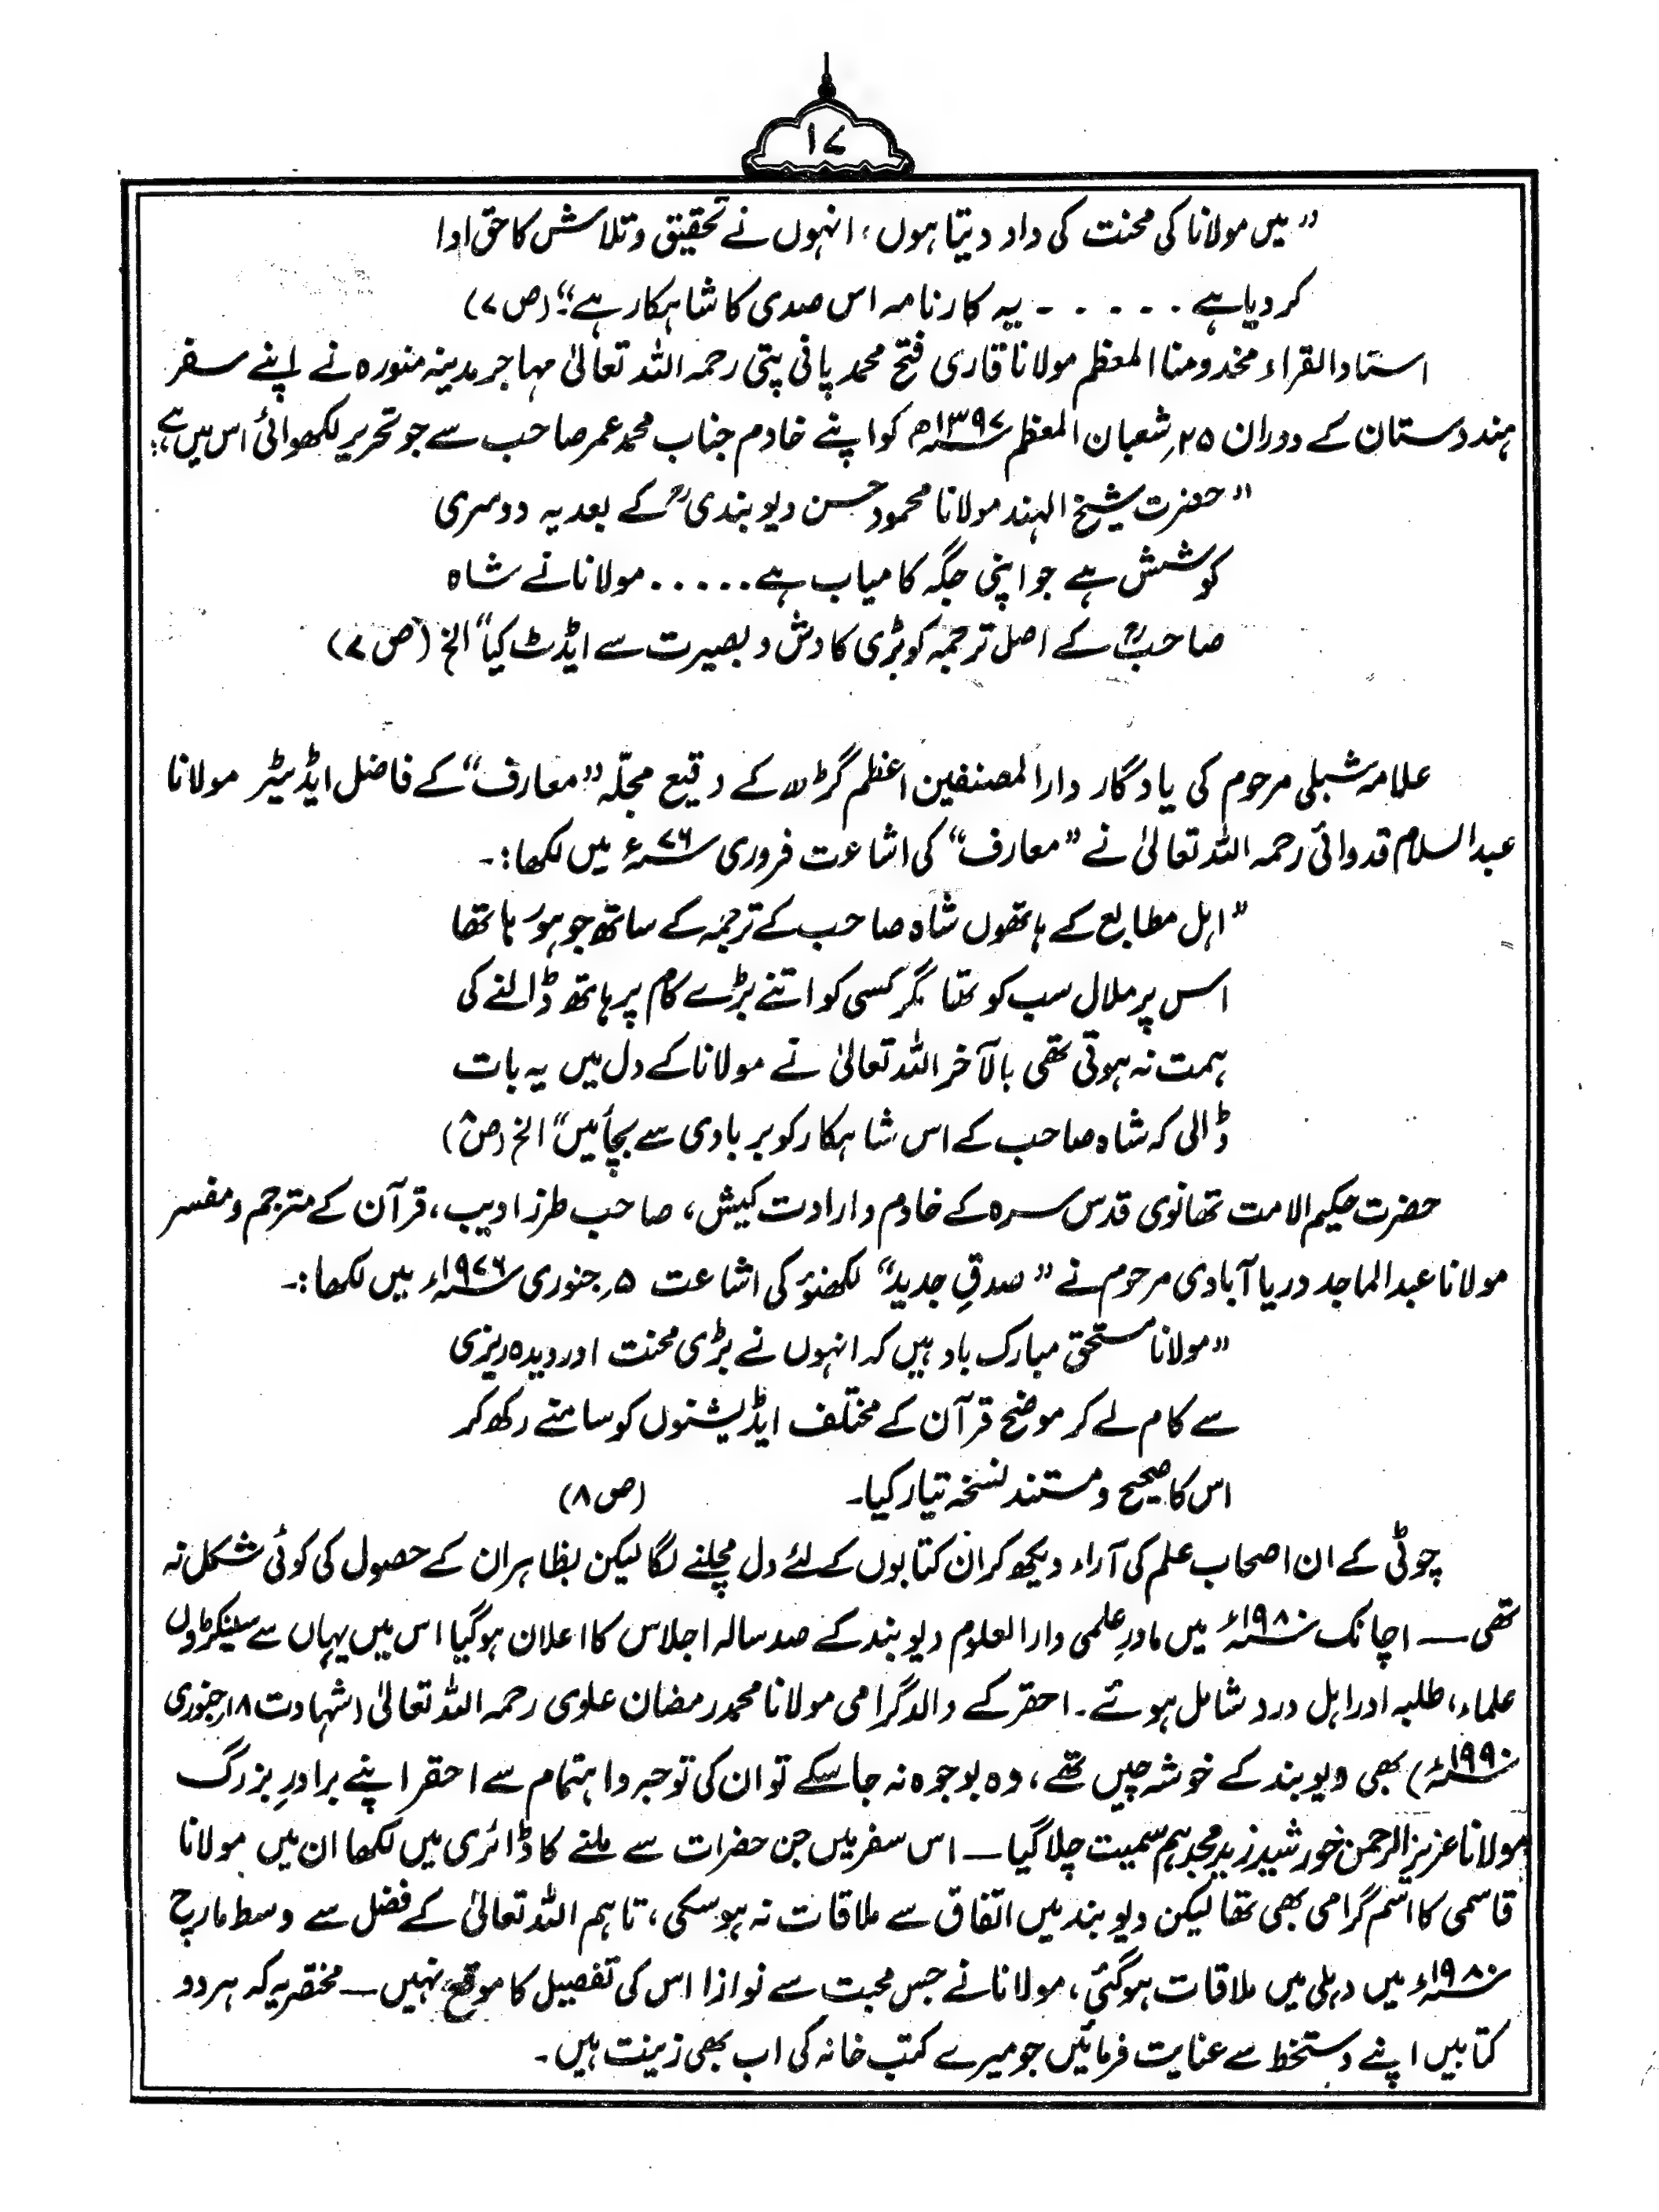 ۱۷
”میں مولانا کی محنت کی داد دیتا ہوں، انہوں نے تحقیق و تلاش کا حق ادا
کر دیا ہے ۔ ۔ ۔ ۔ ۔ ۔ یہ کارنامہ اس صدی کا شاہکار ہے“ (ص ۷)
استاد القراء مخدومنا المعظم مولانا قاری فتح محمد پانی پتی رحمہ اللہ تعالیٰ مہاجر مدینہ منورہ نے اپنے سفر
ہندوستان کے دوران ۲۵؍ شعبان المعظم ۱۳۹۷ھ کو اپنے خادم جناب محمد عمر صاحب سے جو تحریر لکھوائی اس میں ہے:
”حضرت شیخ الہند مولانا محمود حسن دیوبندیؒ کے بعد یہ دوسری
کوشش ہے جو اپنی جگہ کامیاب ہے ..... مولانا نے شاہ
صاحبؒ کے اصل ترجمہ کو بڑی کاوش و بصیرت سے ایڈٹ کیا“ الخ (ص ۷)
علامہ شبلی مرحوم کی یادگار دار المصنفین اعظم گڑھ کے وقیع مجلّہ ”معارف“ کے فاضل ایڈیٹر مولانا
عبد السلام قدوائی رحمہ اللہ تعالیٰ نے ”معارف“ کی اشاعت فروری ۷۶ء میں لکھا :۔
”اہل مطابع کے ہاتھوں شاہ صاحب کے ترجمہ کے ساتھ جو ہو رہا تھا
اس پر ملال سب کو تھا مگر کسی کو اتنے بڑے کام پر ہاتھ ڈالنے کی
ہمت نہ ہوتی تھی بالآخر اللہ تعالیٰ نے مولانا کے دل میں یہ بات
ڈالی کہ شاہ صاحب کے اس شاہکار کو بربادی سے بچائیں“ الخ (ص ۸)
حضرت حکیم الامت تھانوی قدس سرہ کے خادم و ارادت کیش، صاحب طرز ادیب، قرآن کے مترجم و مفسر
مولانا عبد الماجد دریا آبادی مرحوم نے ”صدقِ جدید“ لکھنؤ کی اشاعت ۵؍ جنوری ۱۹۷۶ء میں لکھا :۔
”مولانا مستحق مبارک باد ہیں کہ انہوں نے بڑی محنت اور دیدہ ریزی
سے کام لے کر موضح قرآن کے مختلف ایڈیشنوں کو سامنے رکھ کر
اس کا صحیح و مستند نسخہ تیار کیا۔ (ص ۸)
چوٹی کے ان اصحاب علم کی آراء دیکھ کر ان کتابوں کے لئے دل مچلنے لگا لیکن بظاہر ان کے حصول کی کوئی شکل نہ
تھی — اچانک ۱۹۸۰ء میں مادرِ علمی دار العلوم دیوبند کے صد سالہ اجلاس کا اعلان ہوگیا اس میں یہاں سے سینکڑوں
علماء، طلبہ اور اہل درد شامل ہوئے۔ احقر کے والد گرامی مولانا محمد رمضان علوی رحمہ اللہ تعالیٰ (شہادت ۱۸؍ جنوری
۱۹۹۰ء) بھی دیوبند کے خوشہ چیں تھے، وہ بوجوہ نہ جا سکے تو ان کی توجہ و اہتمام سے احقر اپنے برادرِ بزرگ
مولانا عزیز الرحمن خورشید زید مجدہم سمیت چلا گیا — اس سفر میں جن حضرات سے ملنے کا ڈائری میں لکھا ان میں مولانا
قاسمی کا اسم گرامی بھی تھا لیکن دیوبند میں اتفاق سے ملاقات نہ ہو سکی، تاہم اللہ تعالیٰ کے فضل سے وسط مارچ
۱۹۸۰ء میں دہلی میں ملاقات ہو گئی، مولانا نے جس محبت سے نوازا اس کی تفصیل کا موقع نہیں — مختصر یہ کہ ہر دو
کتابیں اپنے دستخط سے عنایت فرمائیں جو میرے کتب خانہ کی اب بھی زینت ہیں۔